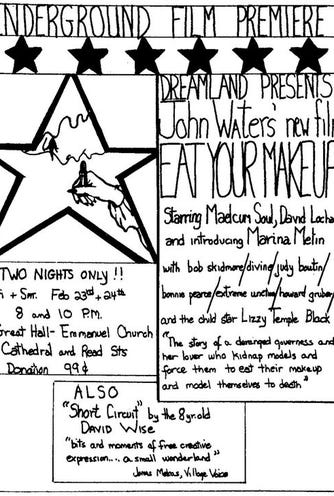 UNDERGROUND FILM PREMIERE
DREAMLAND PRESENTS
John Waters' new film
EAT YOUR MAKEUP
Starring Maelcum Soul, David Locha
and introducing Marina Melin
with bob skidmore/divine/judy boutin/
bonnie pearce/extreme unction/howard gruber/
and the child star Lizzy Temple Black
"The story of a deranged governess and
her lover who kidnap models and
force them to eat their makeup
and model themselves to death"
TWO NIGHTS ONLY!!
i + Sat. Feb 23rd + 24th
8 and 10 P.M.
rrest Hall- Emmanuel Church
Cathedral and Read Sts
Donation 99¢
ALSO
"Short Circuit" by the 8 yr. old
DAVID WISE
"bits and moments of free creative
expression.... a small wonderland"
Jonas Mekas, Village Voice